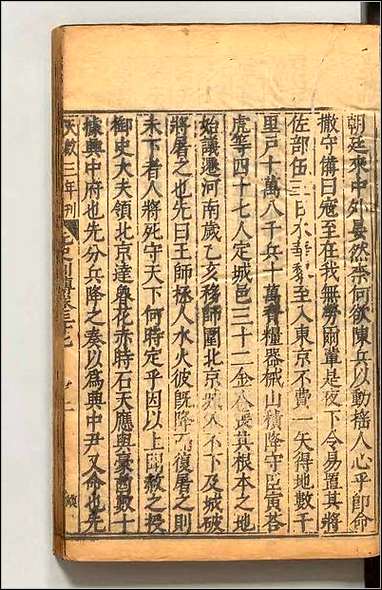 朝廷來中外晏然柰何欲陳兵以動搖人心乎即命
撤守備曰寇至在我無勞爾輩是夜下令易置其將
佐部伍三日木華黎至入東京不費一矢得地數千
里戶十萬八千兵十萬資糧器械山積降守臣寅荅
虎等四十七人定城邑三十二金人喪其根本之地
始議遷河南歲乙亥移師圍北京城久不下及城破
將屠之也先曰王師拯人水火彼既降而復屠之則
未下者人將死守天下何時定乎因以上聞赦之授
御史大夫領北京達魯花赤時石天應與豪酋數十
據興中府也先分兵降之奏以爲興中尹又命也先
三年刊